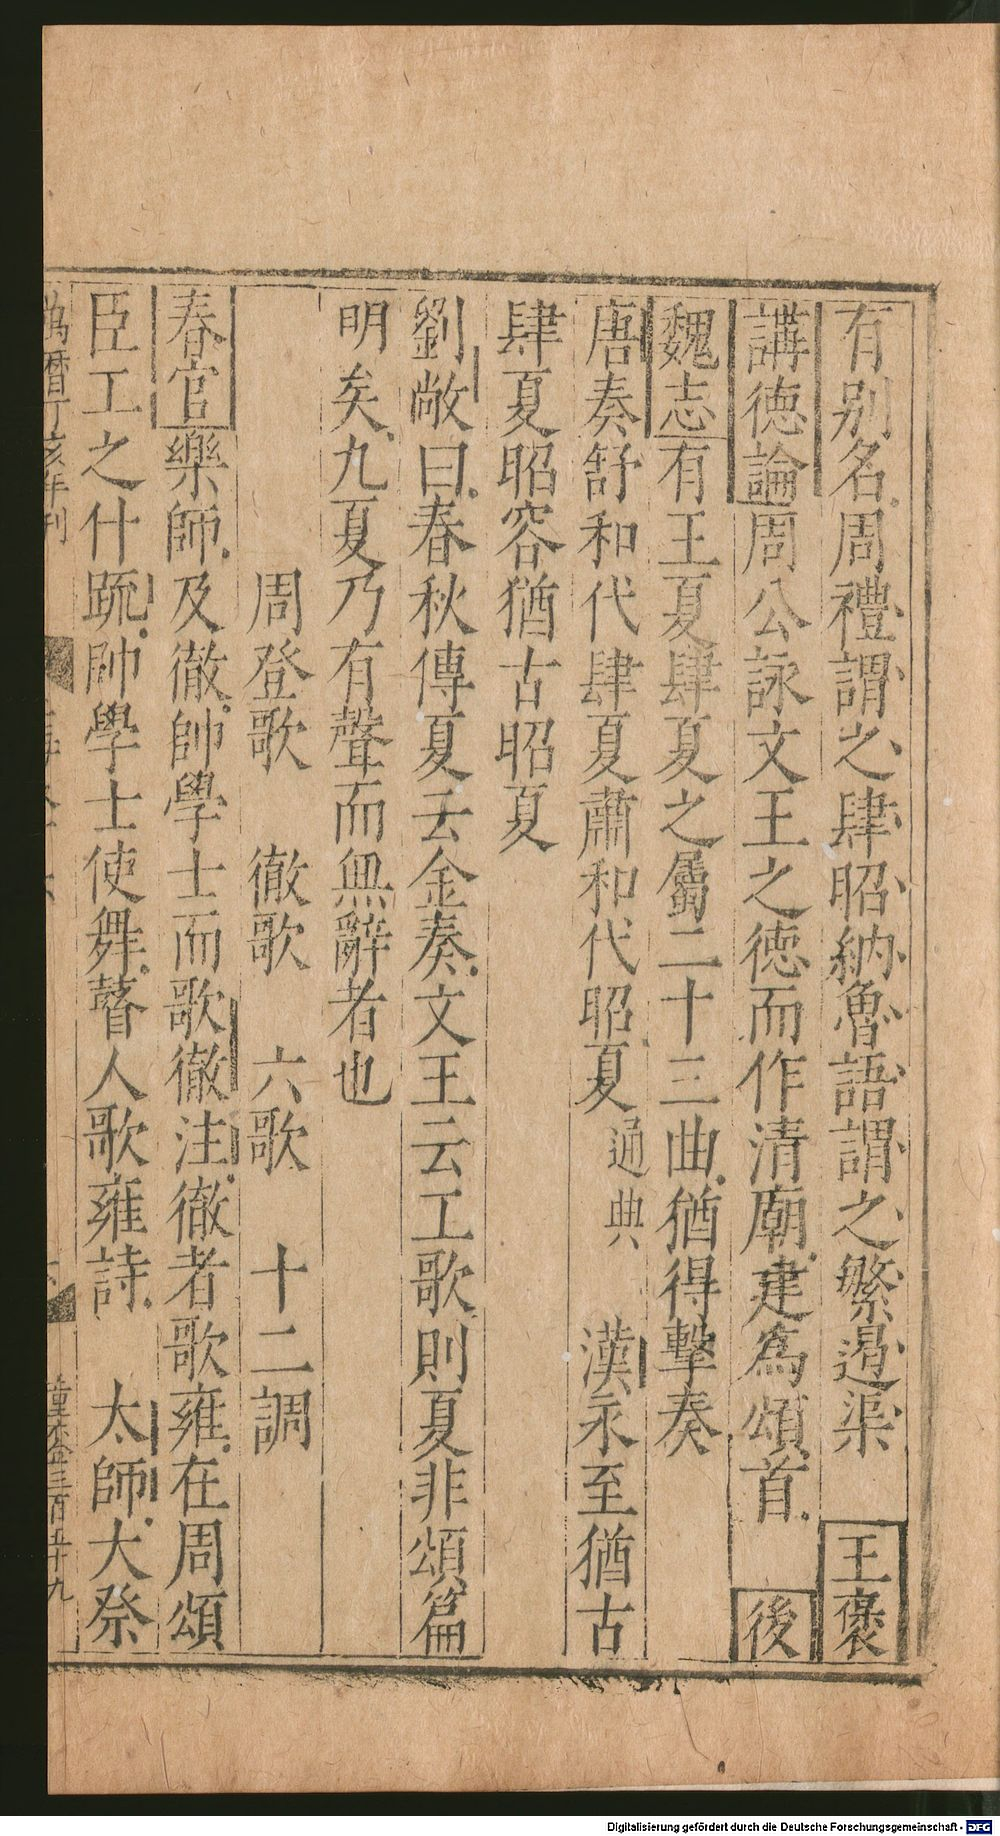 有别名周禮謂之肆昭納魯語謂之繁遏渠　王褒
講徳論周公詠文王之徳而作清廟建爲頌首　後
魏志有王夏肆夏之屬二十三曲猶得擊奏
唐奏舒和代肆夏肅和代昭夏通典　漢永至猶古
肆夏昭容猶古昭夏
劉敞曰春秋傳夏云金奏文王云工歌則夏非頌篇
明矣九夏乃有聲而無辭者也
周登歌　徹歌　六歌　十二調
春官樂師及徹帥學士而歌徹注徹者歌雍在周頌
臣工之什䟽帥學士使舞瞽人歌雍詩　太師大祭
萬曆丁亥年刊
Digitalisierung gefördert durch die Deutsche Forschungsgemeinschaft - DFG